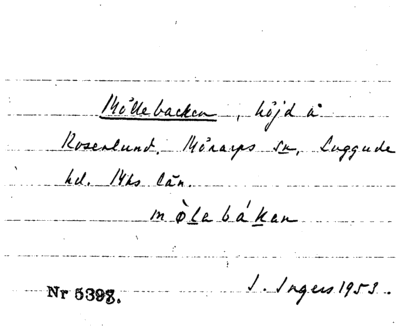 Möllebacken, höjd å
Rosenlund. Mörarps sn, Luggude
hd. Mhs län.
mòlabákan
Nr 5398. I. Ingers 1953.